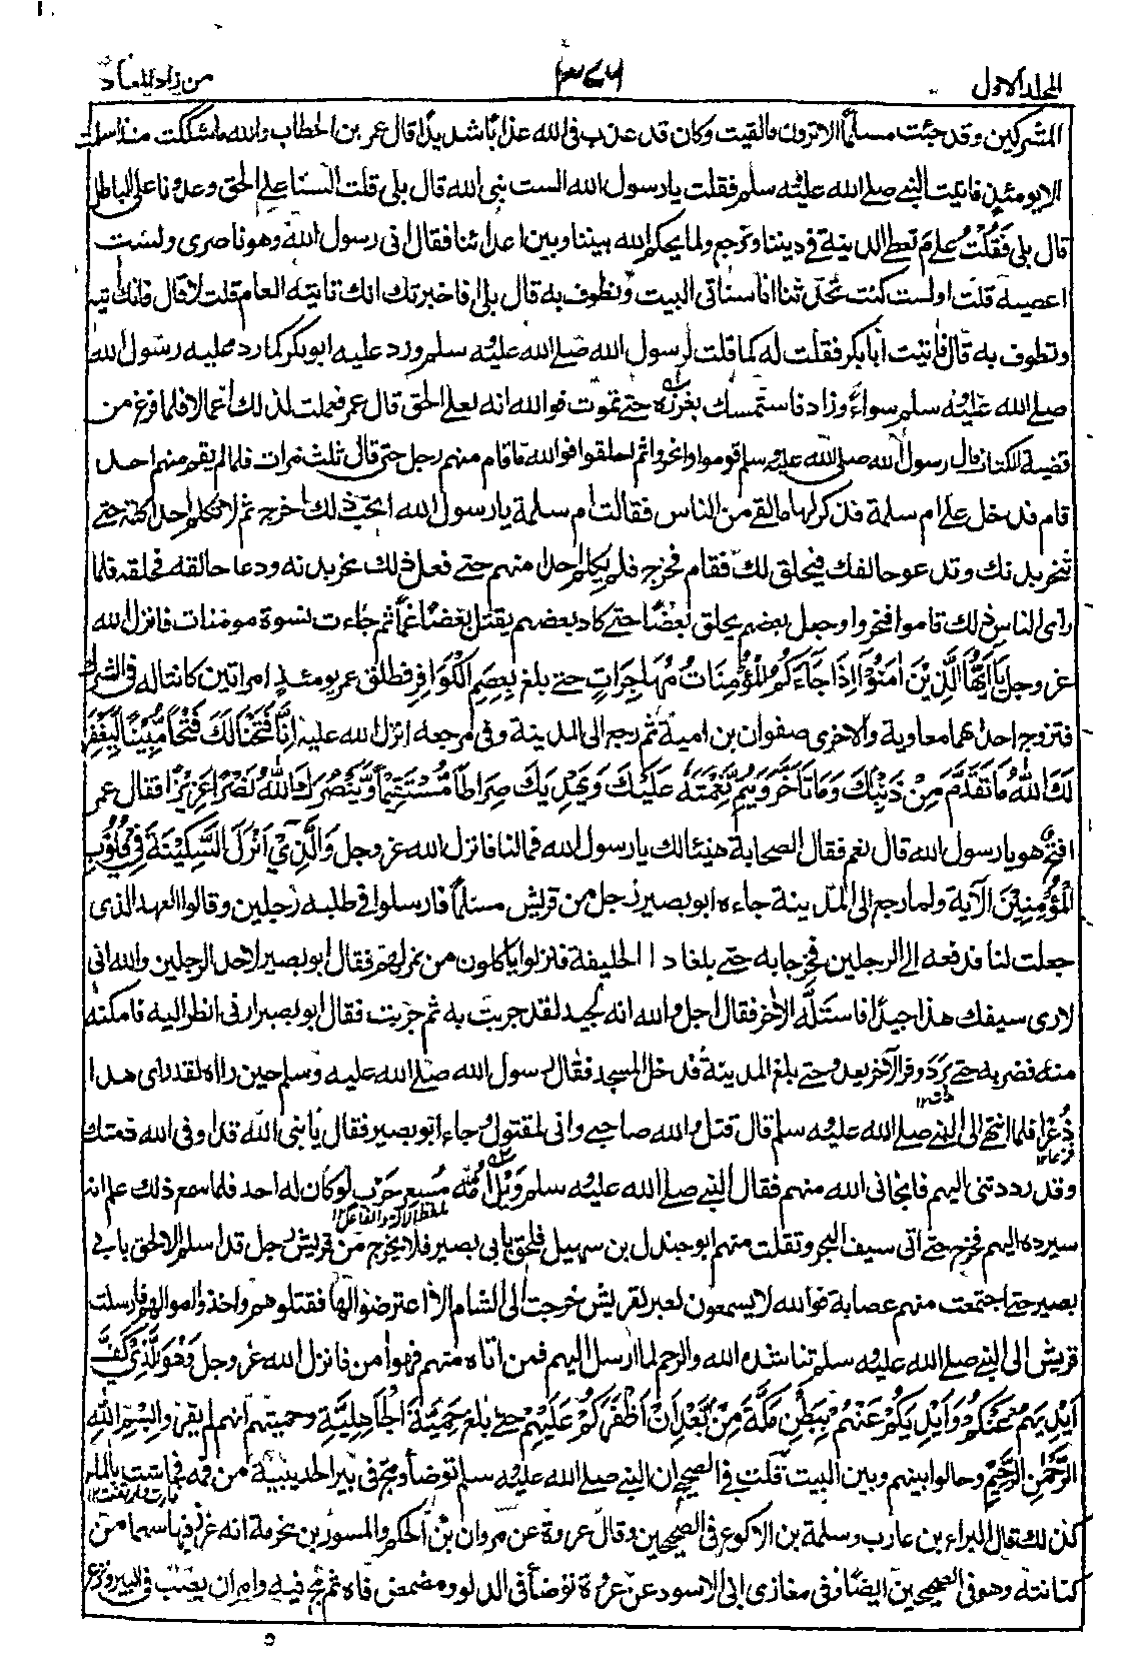 المجلد الاول ٣٧٦ من زاد المعاد
المشركين وقد جئت مسلما الا ترون ما لقيت وكان قد عذب فى الله عذابا شديدا قال عمر بن الخطاب والله ما شككت منذ اسلمت
الا يومئذ فاتيت النبى صلے الله عليه سلم فقلت يا رسول الله الست نبى الله قال بلى قلت السنا علے الحق وعدونا على الباطل
قال بلى فَقُلْتُ علے مَ نعطے الدنية فى ديننا ونرجع ولما يحكم الله بيننا وبين اعدائنا فقال انى رسول الله وهو ناصرى ولست
اعصيه قلت اولست كنت تحدثنا انا سناتى البيت ونطوف به قال بلى افاخبرتك انك تاتيه العام قلت لا قال فانك اتيه
وتطوف به قال فاتيت ابا بكر فقلت له كما قلت لرسول الله صلے الله عليه سلم ورد عليه ابو بكر كما رد عليه رسول الله
صلے الله عليه سلم سواءً وزاد فاستمسك بغرزه حتے تموت فوالله انه لعلے الحق قال عمر فعملت لذلك اعمالا فلما فرغ من
قضية الكتاب قال رسول الله صلى الله عليه سلم قوموا وانحروا ثم احلقوا فوالله ما قام منهم رجل حتى قال ثلث مرات فلما لم يقم منهم احد
قام فدخل علے ام سلمة فذكر لها ما لقے من الناس فقالت ام سلمة يا رسول الله اتحب ذلك اخرج ثم لا تكلم احدا كلمة حتے
تنحر بدنك وتدعو حالقك فيحلق لك فقام فخرج فلم يكلم احدا منهم حتے فعل ذلك نحر بدنه ودعا حالقه فحلقه فلما
راى الناس ذلك قاموا فنحروا وجعل بعضهم يحلق بعضًا حتے كاد بعضهم يقتل بعضًا غمًا ثم جاءت نسوة مومنات فانزل الله
عز وجل يٰا اَيُّهَا الَّذِيْنَ اٰمَنُوْآ اِذَا جَآءَكُمُ الْمُؤْمِنَاتُ مُهَاجِرَاتٍ حتے بلغ بِعِصَمِ الْكَوَافِرِ فطلق عمر يومئذ امراتين كانتا له فى الشرك
فتزوج احداهما معاوية والاخرى صفوان بن امية ثم رجع الى المدينة وفى مرجعه انزل الله عليه اِنَّا فَتَحْنَا لَكَ فَتْحًا مُّبِيْنًا لِّيَغْفِرَ
لَكَ اللهُ مَا تَقَدَّمَ مِنْ ذَنْبِكَ وَمَا تَاَخَّرَ وَيُتِمَّ نِعْمَتَهٗ عَلَيْكَ وَيَهْدِيَكَ صِرَاطًا مُّسْتَقِيْمًا وَّيَنْصُرَكَ اللهُ نَصْرًا عَزِيْزًا فقال عمر
افتح هو يا رسول الله قال نعم فقال الصحابة هنيئا لك يا رسول الله فما لنا فانزل الله عز وجل وَالَّذِيْ اَنْزَلَ السَّكِيْنَةَ فِيْ قُلُوْبِ
الْمُؤْمِنِيْنَ الآية ولما رجع الى المدينة جاءه ابو بصير رجل من قريش مسلما فارسلوا فى طلبه رجلين وقالوا العهد الذى
جعلت لنا فدفعه الے الرجلين فخرجا به حتے بلغا ذا الحليفة فنزلوا ياكلون من تمر لهم فقال ابو بصير لاحد الرجلين والله انى
لارى سيفك هذا جيدا فاستله الآخر فقال اجل والله انه لجيد لقد جربت به ثم جربت فقال ابو بصير ارنى انظر اليه فامكنه
منه فضربه حتے برد وفر الآخر يعدو حتے بلغ المدينة فدخل المسجد فقال رسول الله صلے الله عليه وسلم حين راه لقد راى هذا
ذُعْرًا فلما انتهى الى النبے صلے الله عليه سلم قال قتل والله صاحبے وانى لمقتول وجاء ابو بصير فقال يا نبى الله قد اوفى الله ذمتك
وقد رددتنى اليهم فانجانى الله منهم فقال النبے صلے الله عليه سلم وَيْلُ اُمِّهٖ مِسْعر حَرْب لو كان له احد فلما سمع ذلك علم انه
سيرده اليهم فخرج حتے اتى سيف البحر وتفلت منهم ابو جندل بن سهيل فلحق بابى بصير فلا يخرج من قريش رجل قد اسلم الا لحق بابے
بصير حتے اجتمعت منهم عصابة فوالله لا يسمعون بعير لقريش خرجت الى الشام الا اعترضوا لها فقتلوهم واخذوا اموالهم فارسلت
قريش الى النبے صلے الله عليه سلم تناشده الله والرحم لما ارسل اليهم فمن اتاه منهم فهو آمن فانزل الله عز وجل وَهُوَ الَّذِيْ كَفَّ
اَيْدِيَهُمْ عَنْكُمْ وَاَيْدِيَكُمْ عَنْهُمْ بِبَطْنِ مَكَّةَ مِنْ بَعْدِ اَنْ اَظْفَرَكُمْ عَلَيْهِمْ حتے بلغ حَمِيَّةَ الْجَاهِلِيَّةِ وحميتهم انهم لم يقروا بِسْمِ اللهِ
الرَّحْمٰنِ الرَّحِيْمِ وحالوا بينهم وبين البيت قلت فے الصحيح ان النبے صلے الله عليه سلم توضأ ومج فى بير الحديبية من فمه فجاشت بالماء
كذلك قال البراء بن عازب وسلمة بن الاكوع فى الصحيحين وقال عروة عن مروان بن الحكم والمسور بن مخرمة انه غرز فيها سهما من
كنانته وهو فى الصحيحين ايضا وفى مغازى ابى الاسود عن عروة توضأ فى الدلو ومضمض فاه ثم مج فيه وامر ان يصب فى البير ونزع